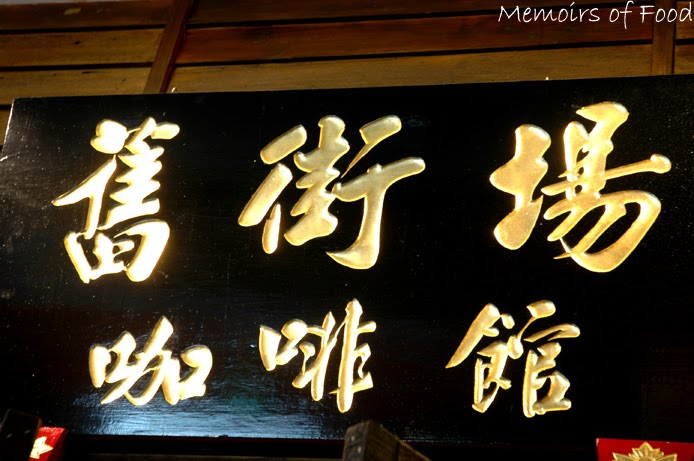 Memoirs of Food
舊街場
咖啡館